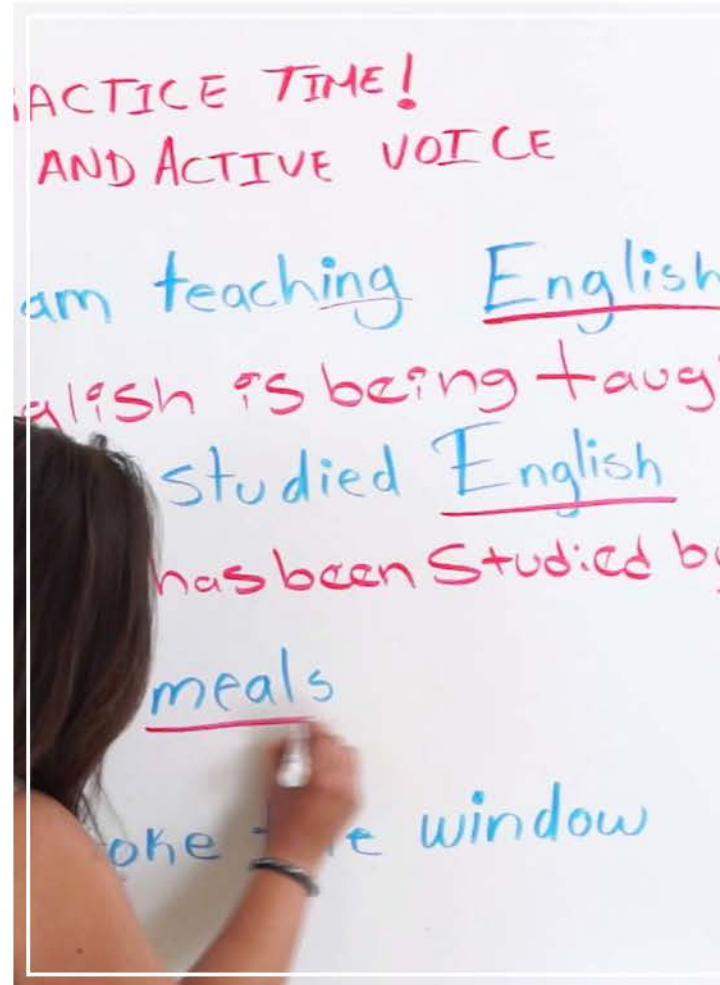 ACTICE TIME!
AND ACTIVE VOICE
am teaching English
glish is being taug
studied English
has been studied by
meals
oke the window